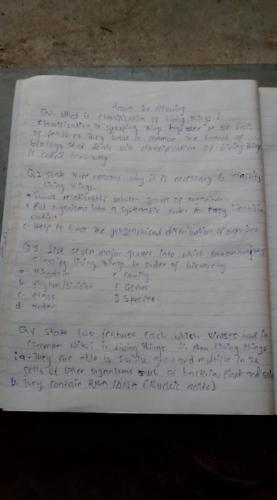 Answer the following
Qn1 What is classification of living things?
Classification is grouping things together on the basis
of features they have in common. The branch of
biology that deals with classification of living things
is called taxonomy
Q.2 State three reasons why it is necessary to classify
living things.
Shows relationships between groups of organisms
Put organisms into a systematic order for easy identifi
cation
c. Help to know the geographical distribution of organisms
Q.3. List seven major groups into which taxonomists
classify living things in order of hierarchy
a. Kingdom e. Family
b. Phylum/Division f. Genus
c. class g Species
d. order
Q4 State two features each which viruses have in
common with: i. living things ii. Non living things
i a. They are able to survive, grow and multiply in the
cells of other organisms such as bacteria, plant and
b. They contain RNA/DNA (Nucleic acids)